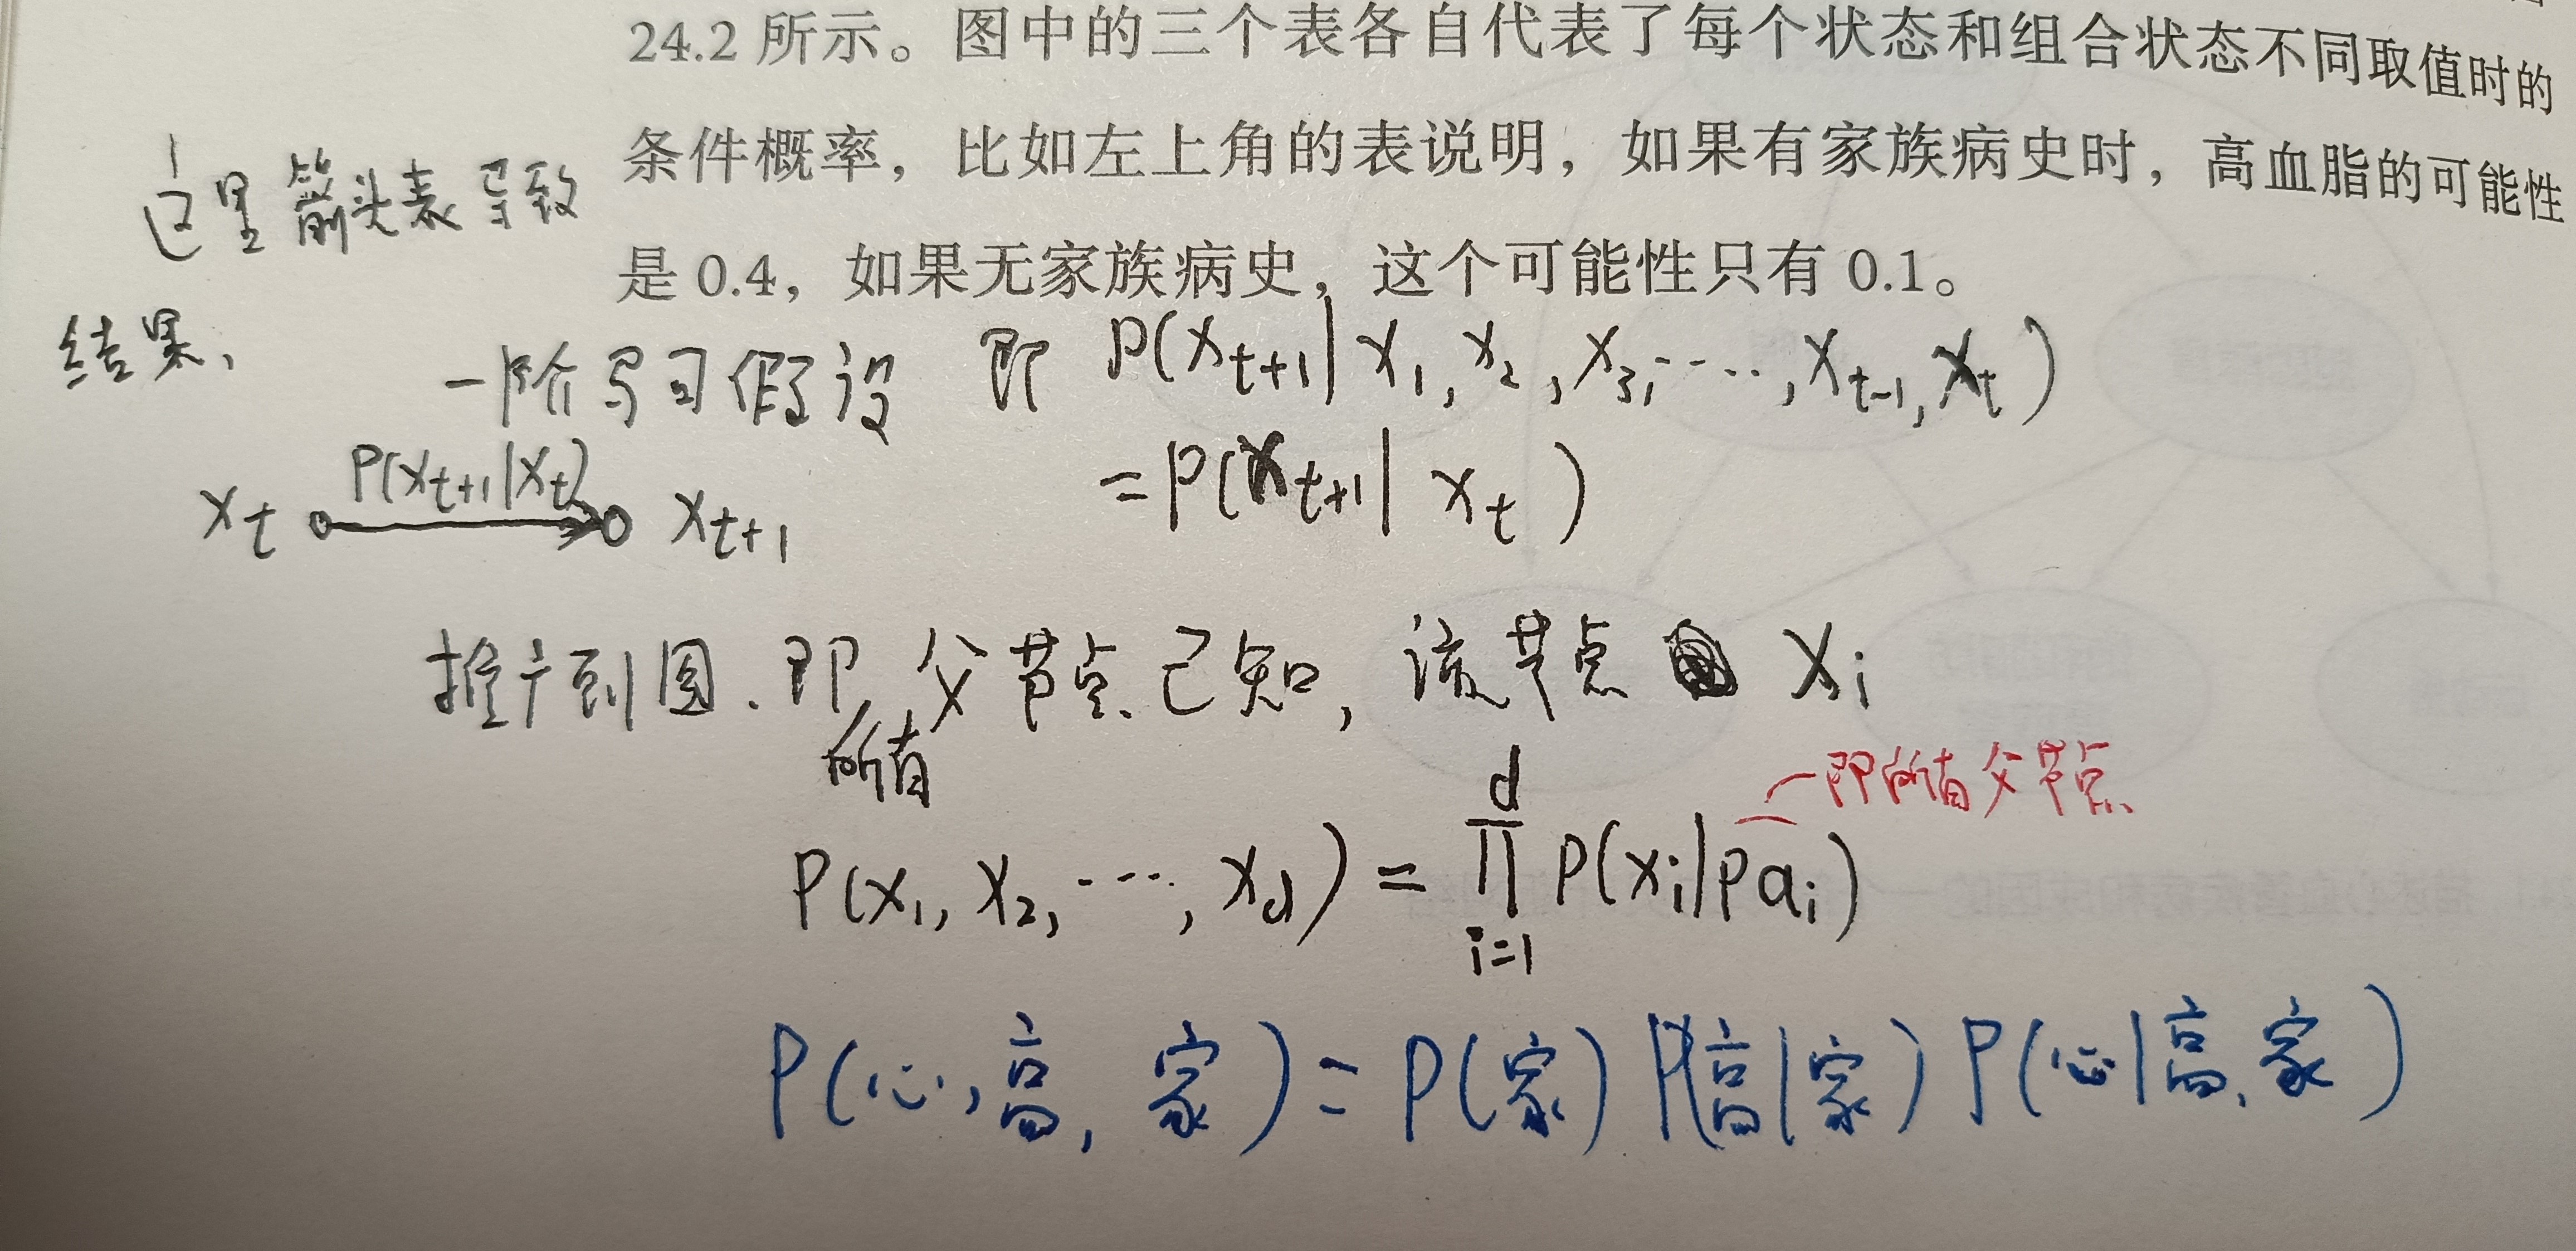 24.2 所示。图中的三个表各自代表了每个状态和组合状态不同取值时的
条件概率，比如左上角的表说明，如果有家族病史时，高血脂的可能性
是 0.4，如果无家族病史，这个可能性只有 0.1。
这里箭头表导致
结果、
一阶马可假设 即 P(x_{t+1}|x_1,x_2,x_3,…,x_{t-1},x_t)
=P(x_{t+1}|x_t)
P(x_{t+1}|x_t)
x_t x_{t+1}
推广到图.即所有父节点已知,该节点 x_i
即所有父节点
P(x_1,x_2,…,x_d)=∏_{i=1}^{d}P(x_i|pa_i)
P(心,高,家)=P(家)P(高|家)P(心|高,家)